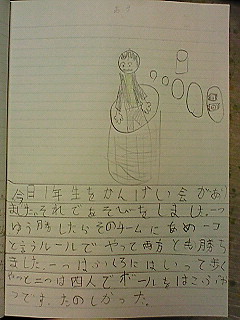 今日1年生をかんげい会があり
ました。それであそびをしました。一つ
ゆう勝したらそのチームにあめ一コ
と言うルールでやって両方とも勝ち
ました。一つはふくろにはいって歩く
やつと二つは四人でボールをはこぶや
つです。たのしかった。